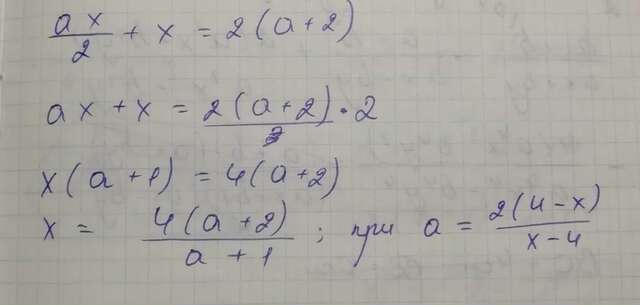 ax/2 + x = 2(a+2)
ax + x = 2(a+2)·2
x(a+1) = 4(a+2)
x = 4(a+2)/(a+1) ; при a = 2(4-x)/(x-4)